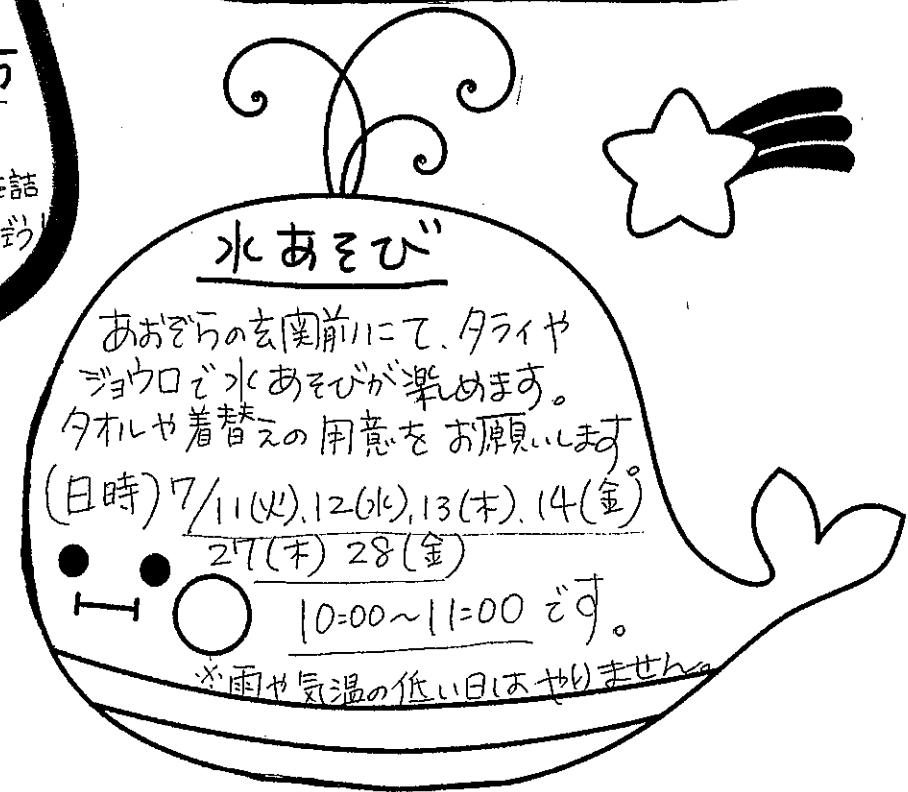 水あそび
あおぞらの玄関前にて、タライや
ジョウロで水あそびが楽しめます。
タオルや着替えの用意をお願いします。
(日時) 7/11(火)、12(水)、13(木)、14(金)
27(木) 28(金)
10:00〜11:00 です。
※雨や気温の低い日はやりません。
を詰
ぞう!